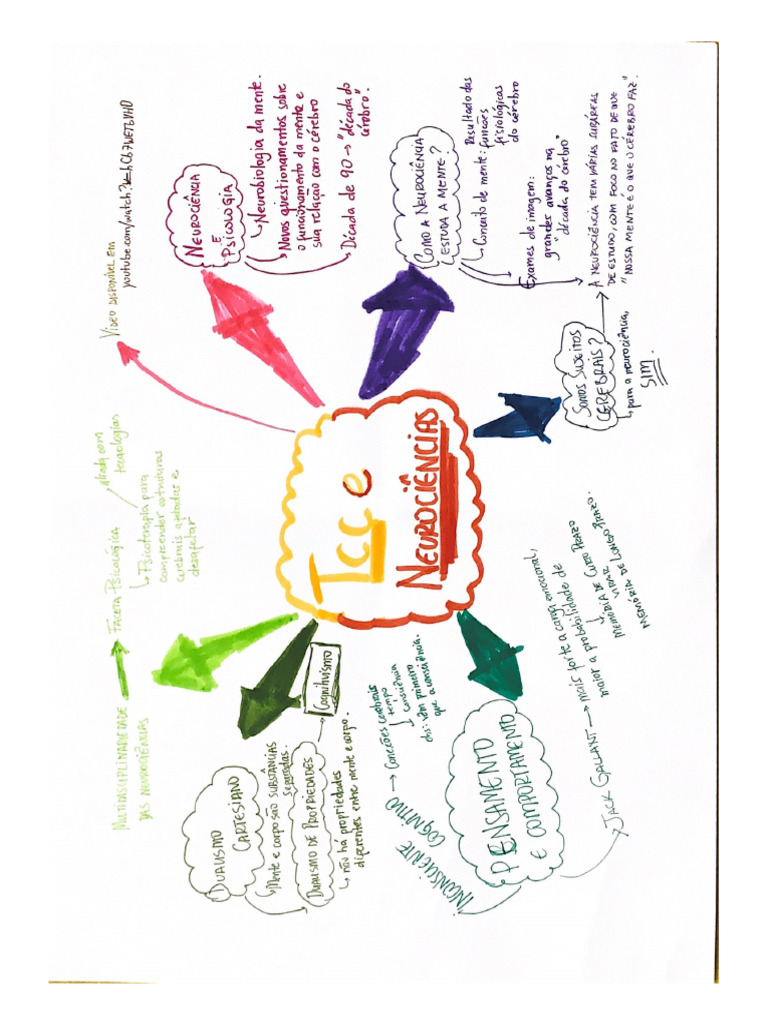 TCC e
NEUROCIÊNCIAS
MULTIDISIPLINARIEDADE
DAS NEUROCIÊNCIAS
FACETA PSICOLÓGICA
aliada com
tecnologias
Psicoterapia para
compreender estruturas
cerebrais afetadas e
desafetar
VÍDEO DISPONÍVEL EM
NEUROCIÊNCIA
E
PSICOLOGIA
Neurobiologia da mente.
Novos questionamentos sobre
o funcionamento da mente e
sua relação com o cérebro
Década de 90 → "década do
cérebro".
COMO A NEUROCIÊNCIA
ESTUDA A MENTE?
Conceito de mente:
Resultado das
funções
fisiológicas
do cérebro
Exames de imagem:
grandes avanços na
"década do cérebro"
SOMOS SUJEITOS
CEREBRAIS?
para a neurociência,
SIM.
A NEUROCIÊNCIA TEM VÁRIAS SUBÁREAS
DE ESTUDO, COM FOCO NO FATO DE QUE
"NOSSA MENTE É O QUE O CÉREBRO FAZ."
DUALISMO
CARTESIANO
Mente e corpo são SUBSTÂNCIAS
separadas.
DUALISMO DE PROPRIEDADES
Cognitivismo
não há propriedades
diferentes entre mente e corpo.
PENSAMENTO
E COMPORTAMENTO
INCONSCIENTE COGNITIVO → conecções cerebrais
tempo
consciência
obs: vêm primeiro
que a consciência.
JACK GALLANT → mais forte a carga emocional,
maior a probabilidade de
MEMÓRIA DE CURTO PRAZO
VIRAR
MEMÓRIA DE LONGO PRAZO.